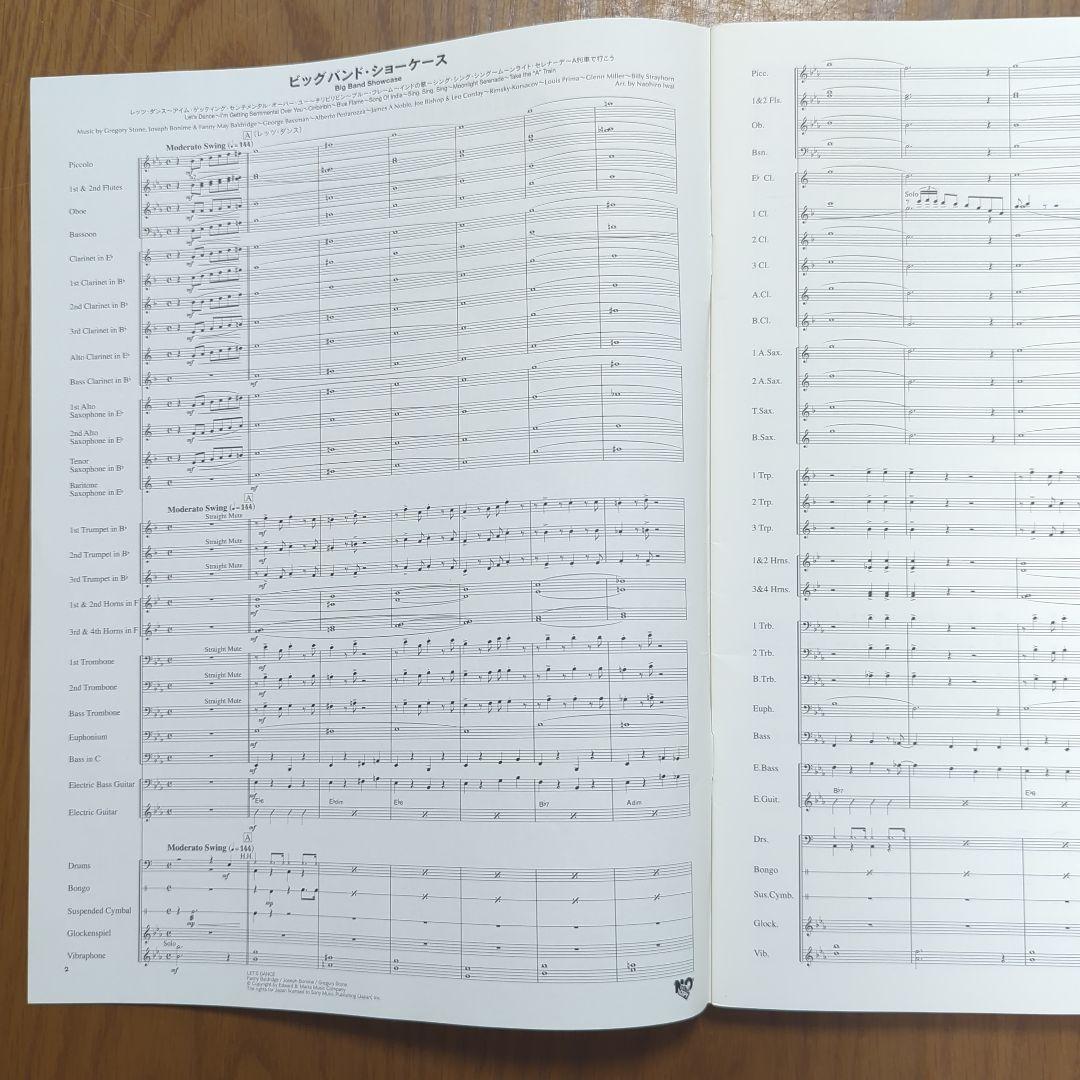 ビッグバンド・ショーケース
Big Band Showcase
レッツ・ダンス〜アイム・ゲッティング・センチメンタル・オーバー・ユー〜チリビリビン〜ブルー・フレーム〜インドの歌〜シング・シング・シング〜ムーンライト・セレナーデ〜A列車で行こう
Let's Dance~I'm Getting Sentimental Over You~Ciribiribin~Blue Flame~Song Of India~Sing, Sing, Sing~Moonlight Serenade~Take the "A" Train
Music by Gregory Stone, Joseph Bonime & Fanny May Baldridge~George Bassman~Alberto Pestalozza~James A Noble, Joe Bishop & Leo Corday~Rimsky-Korsacov~Louis Prima~Glenn Miller~Billy Strayhorn
Arr. by Naohiro Iwai
A [レッツ・ダンス]
Moderato Swing (♩=144)
Piccolo
mf
1st & 2nd Flutes
mf
Oboe
mf
Bassoon
mf
Clarinet in E♭
mf
1st Clarinet in B♭
mf
2nd Clarinet in B♭
mf
3rd Clarinet in B♭
mf
Alto Clarinet in E♭
mf
Bass Clarinet in B♭
mf
1st Alto
Saxophone in E♭
mf
2nd Alto
Saxophone in E♭
mf
Tenor
Saxophone in B♭
mf
Baritone
Saxophone in E♭
mf
A
Moderato Swing (♩=144)
Straight Mute
1st Trumpet in B♭
mf
Straight Mute
2nd Trumpet in B♭
mf
Straight Mute
3rd Trumpet in B♭
mf
1st & 2nd Horns in F
mf
3rd & 4th Horns in F
mf
Straight Mute
1st Trombone
mf
Straight Mute
2nd Trombone
mf
Straight Mute
Bass Trombone
mf
Euphonium
mf
Bass in C
mf
Electric Bass Guitar
mf
E♭6 E♭dim E♭6 B♭7 Adim
Electric Guitar
mf
A
Moderato Swing (♩=144)
H.H.
Drums
mf
Bongo
mp
Suspended Cymbal
mp
Glockenspiel
Solo
Vibraphone
mf
2
LET'S DANCE
Fanny Baldridge / Joseph Bonime / Gregory Stone
© Copyright by Edward B. Marks Music Company
The rights for Japan licensed to Sony Music Publishing (Japan) Inc.
Picc.
1&2 Fls.
Ob.
Bsn.
E♭ Cl.
Solo
3
1 Cl.
2 Cl.
3 Cl.
A.Cl.
B.Cl.
1 A.Sax.
2 A.Sax.
T.Sax.
B.Sax.
1 Trp.
2 Trp.
3 Trp.
1&2 Hrns.
3&4 Hrns.
1 Trb.
2 Trb.
B.Trb.
Euph.
Bass
E.Bass
B♭7 E♭6
E.Guit.
Drs.
Bongo
Sus.Cymb.
Glock.
Vib.